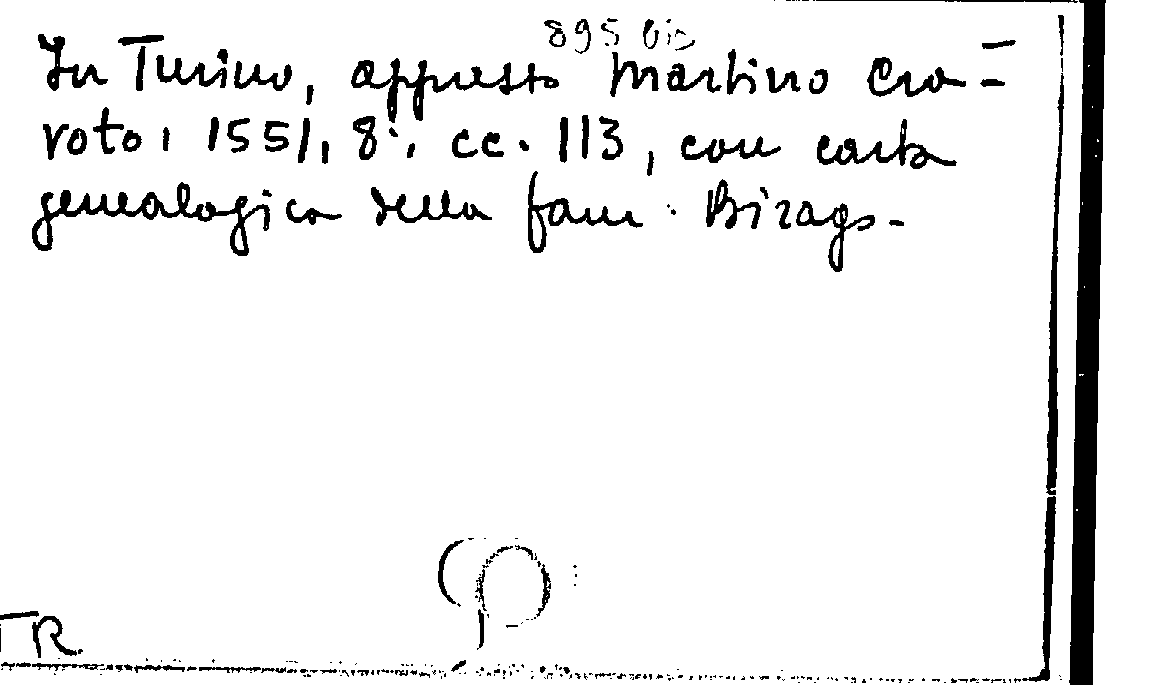 895 bis
In Turino, appresso Martino Cra=
voto, 1551, 8°, cc. 113, con carta
genealogica della fam. Birago.
TR.